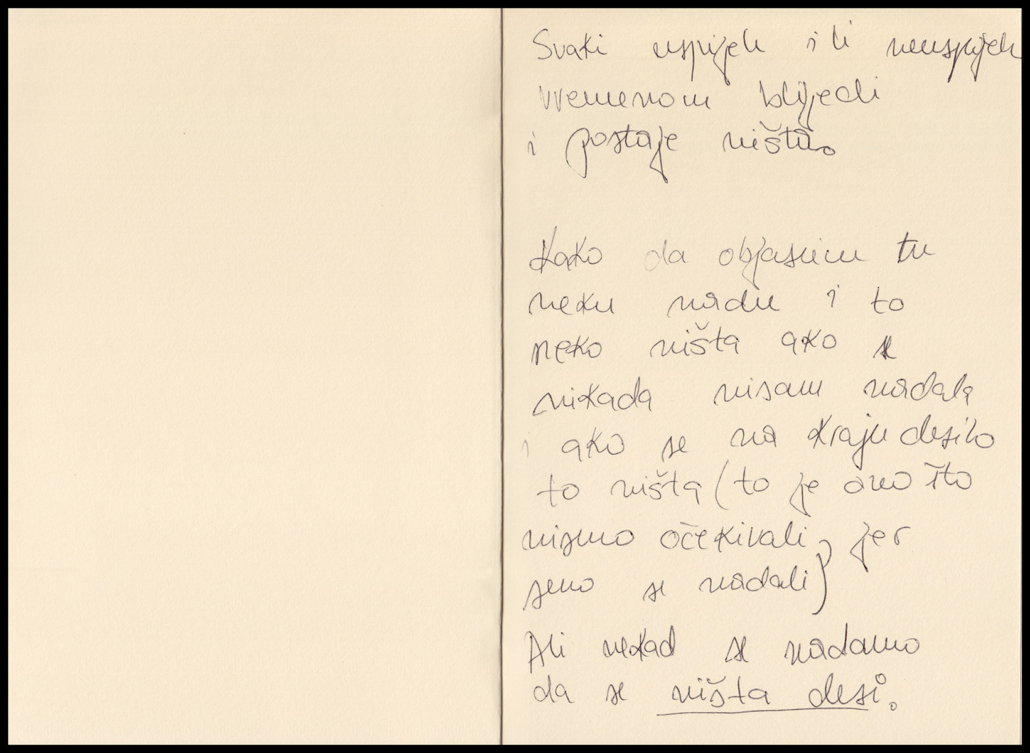 Svaki uspijeh ili neuspijeh
vremenom blijedi
i postaje ništa.
Kako da objasnim tu
neku nadu i to
neko ništa ako se
nikada nisam nadala
i ako se na kraju desilo
to ništa (to je ono što
nismo očekivali, jer
smo se nadali)
Ali nekad se nadamo
da se ništa desi.